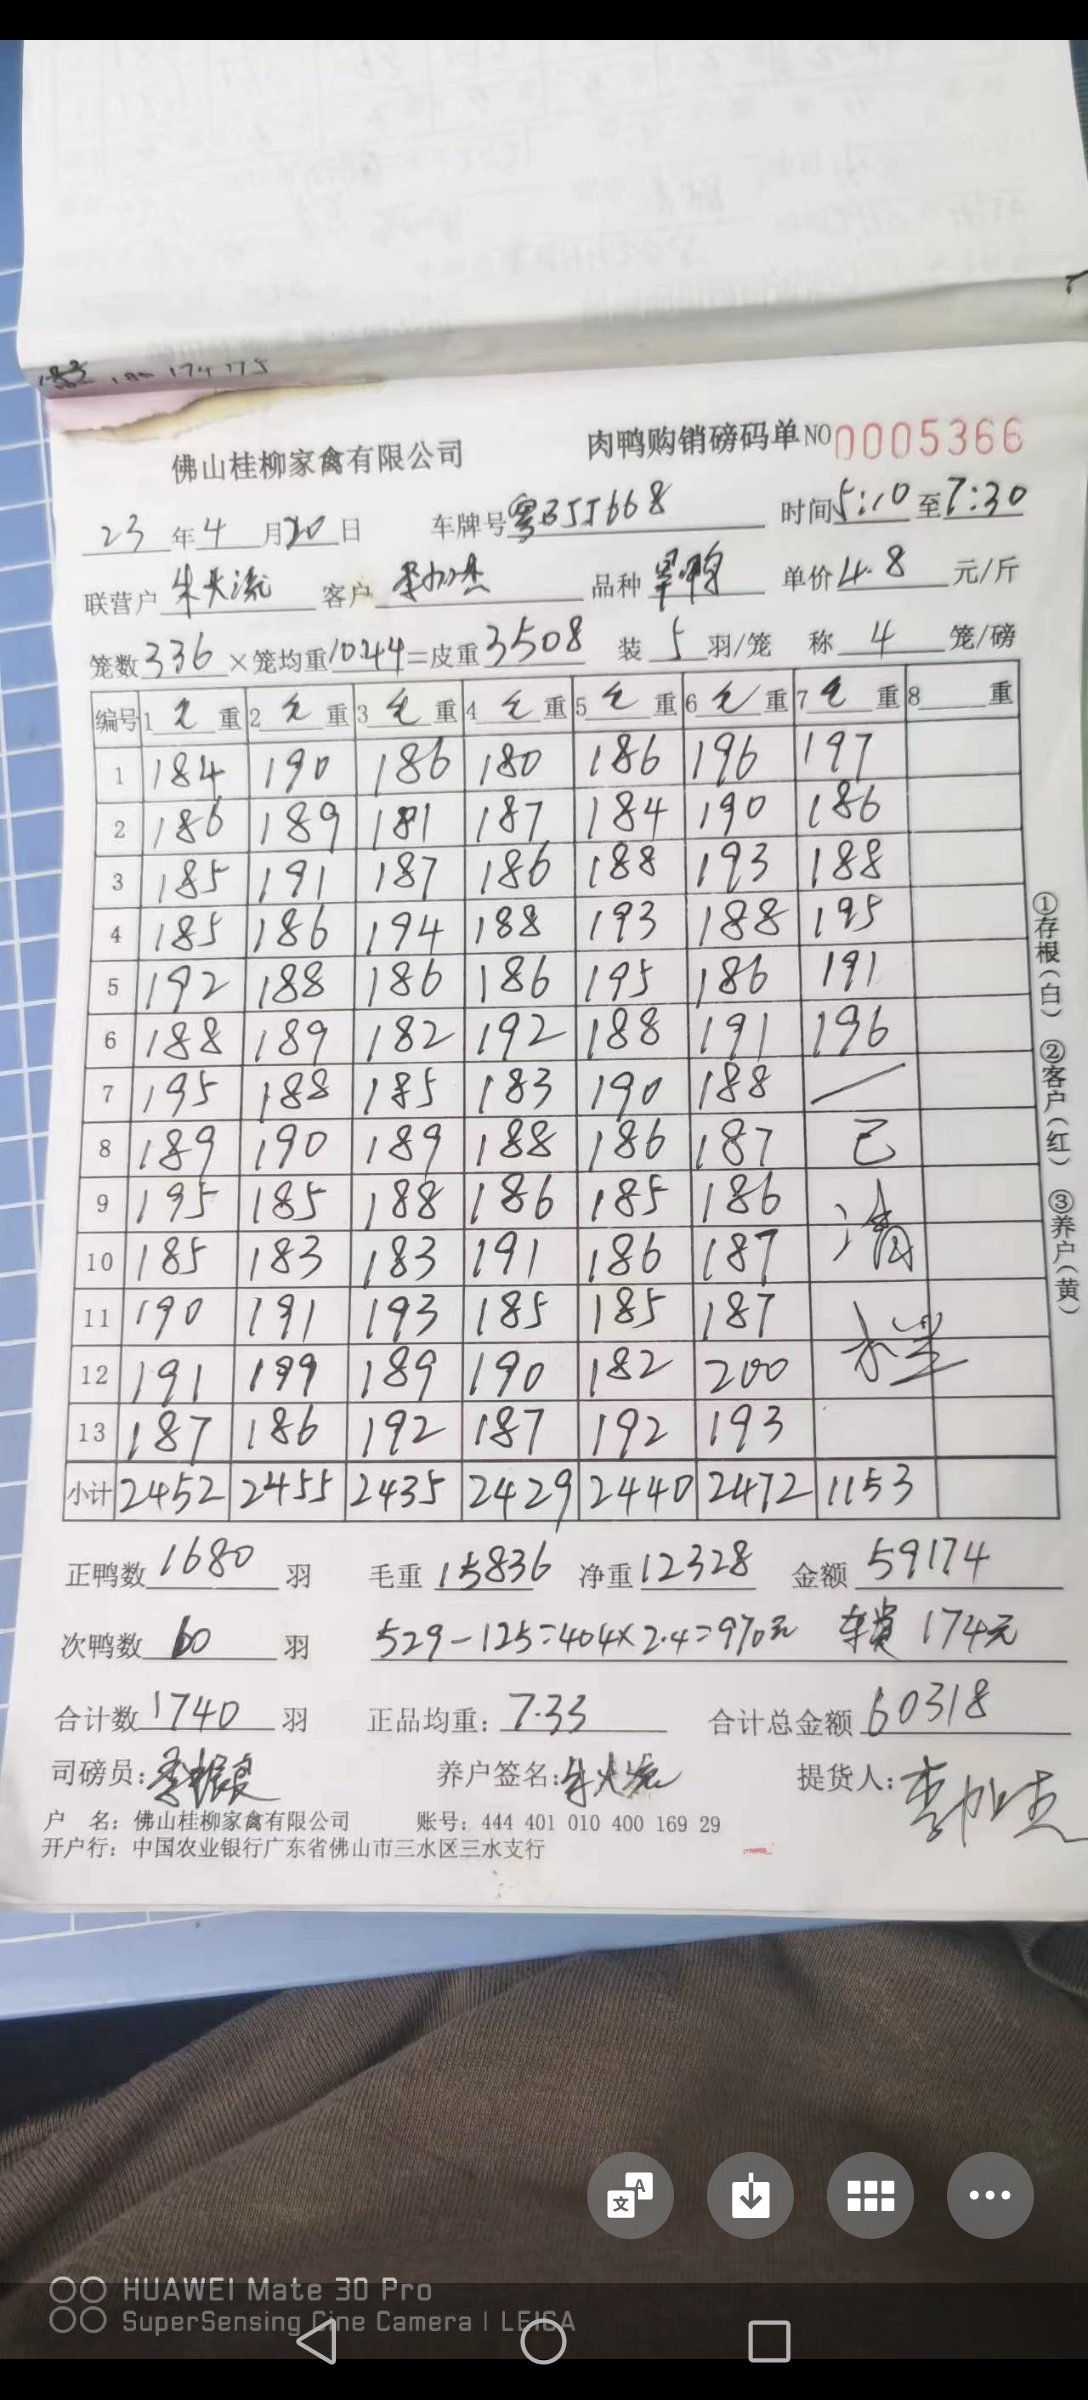 174 175
佛山桂柳家禽有限公司 肉鸭购销磅码单 NO 0005366
23年4月20日 车牌号 粤B5J668 时间5:10至7:30
联营户 客户 品种 旱鸭 单价4.8元/斤
笼数336×笼均重1044=皮重3508 装5羽/笼 称4笼/磅
编号 1毛重 2毛重 3毛重 4毛重 5毛重 6毛重 7毛重 8 重
1 184 190 186 180 186 196 197
2 186 189 181 187 184 190 186
3 185 191 187 186 188 193 188
4 185 186 194 188 193 188 195
5 192 188 186 186 195 186 191
6 188 189 182 192 188 191 196
7 195 188 185 183 190 188
8 189 190 189 188 186 187 已
9 195 185 188 186 185 186
10 185 183 183 191 186 187 清
11 190 191 193 185 185 187
12 191 199 189 190 182 200
13 187 186 192 187 192 193
小计 2452 2455 2435 2429 2440 2472 1153
正鸭数1680羽 毛重15836 净重12328 金额59174
次鸭数60羽 529-125=404×2.4=970元 车费 174元
合计数1740羽 正品均重:7.33 合计总金额60318
司磅员: 养户签名: 提货人:
户 名:佛山桂柳家禽有限公司 账号:444 401 010 400 169 29
开户行:中国农业银行广东省佛山市三水区三水支行
①存根(白) ②客户(红) ③养户(黄)
HUAWEI Mate 30 Pro
SuperSensing Cine Camera | LEICA